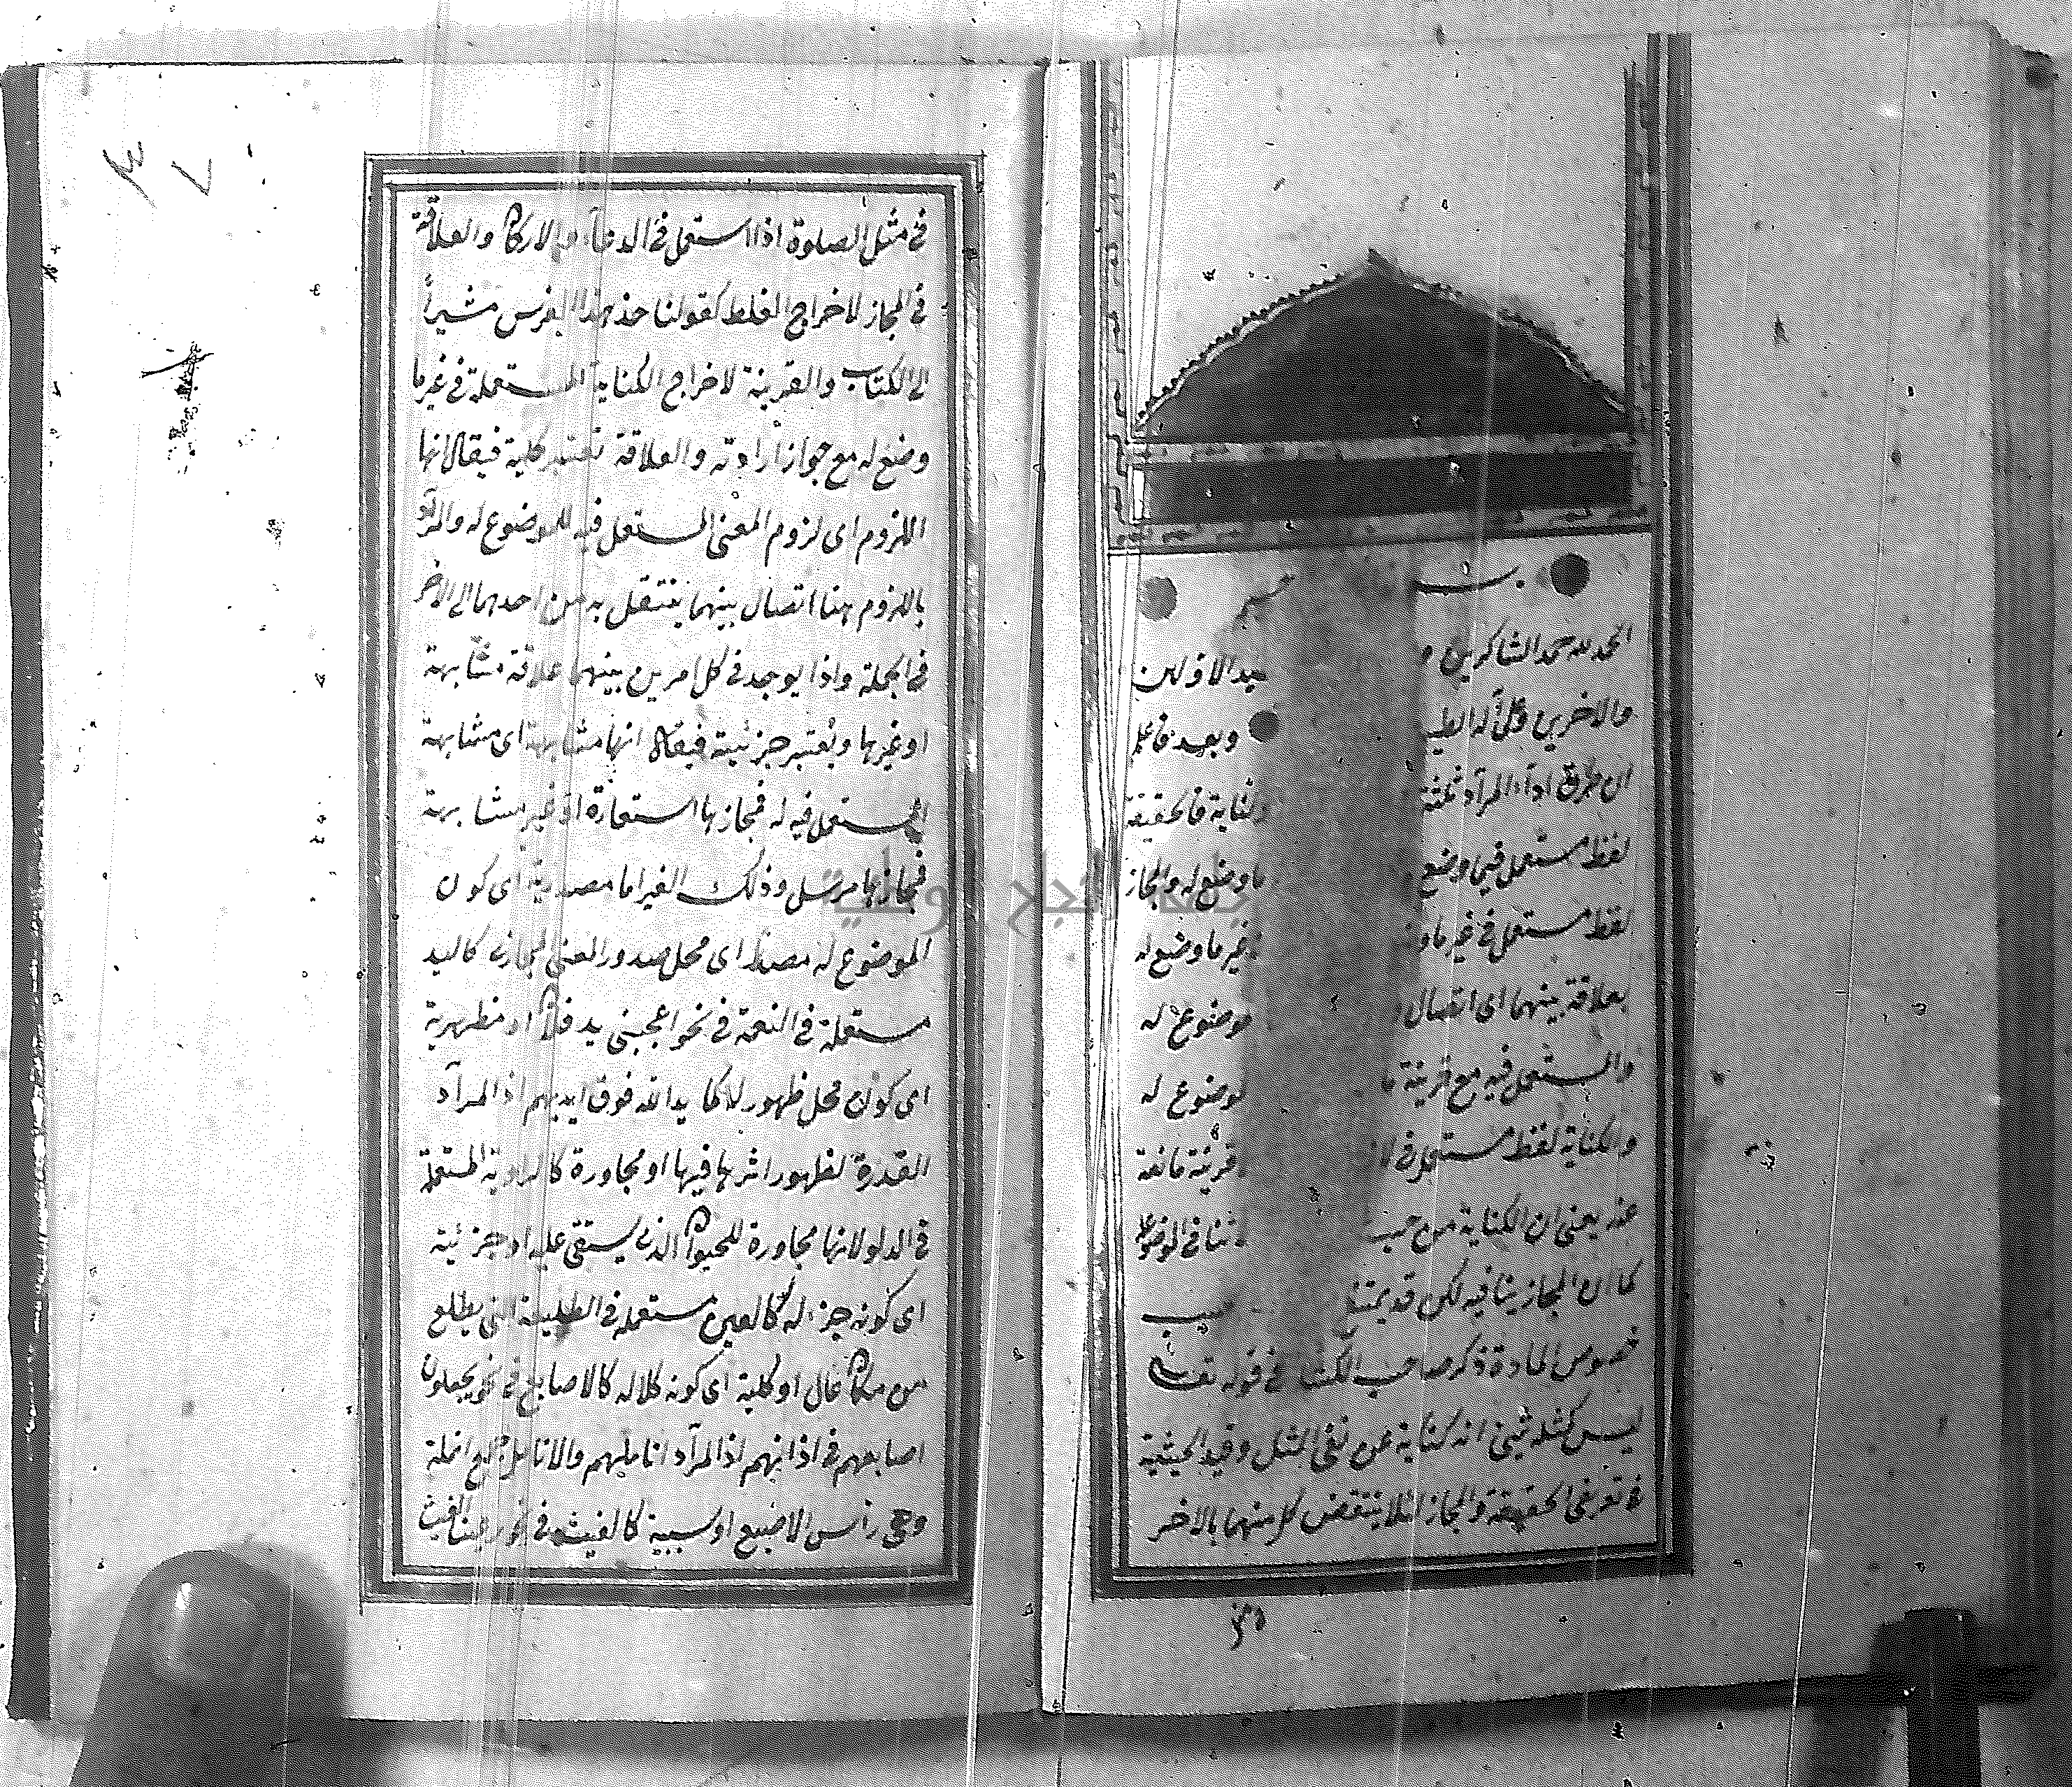 بسم
الحمد لله حمد الشاكرين سيد الاولين
والاخرين وعلى اله الطيبـ وبعد فاعلم
ان طرق ادآء المرآد ثلثة وكناية فالحقيقة
لفظ مستعمل فيما وضع ما وضع له والمجاز
لفظ مستعمل في غير ما وضع غير ما وضع له
بعلاقة بينهما اى اتصال موضوع له
والمستعمل فيه مع قرينة موضوع له
والكناية لفظ مستعمل في قرينة مانعة
عنه يعنى ان الكناية من حيث في الموضوع
كما ان المجاز ينافيه لكن قد يمتنع
خصوص المادة ذكر صاحب الكشاف في قوله تعالى
ليس كمثله شئ انه كناية عن نفى المثل وقيد الحيثية
في تعريفى الحقيقة والمجاز لئلا ينتقض كل منهما بالاخر
في مثل الصلوة اذا استعمل في الدعآء والاركان والعلاقة
في المجاز لاخراج الغلط كقولنا خذ هذا الفرس مشيراً
الى الكتاب والقرينة لاخراج الكناية المستعملة في غير ما
وضع له مع جواز ارادته والعلاقة تعتبر كلية فيقال انها
اللزوم اى لزوم المعنى المستعمل فيه للموضوع له والمرآد
باللزوم هنا اتصال بينهما ينتقل به من احدهما الى الاخر
في الجملة واذا يوجد في كل امرين بينهما علاقة مشابهة
او غيرها وتعتبر جزئية فيقال انها مشابهة اى مشابهة
المستعمل فيه له فمجازها استعارة او غير مشابهة
فمجازها مرسل وذلك الغير اما مصدرية اى كون
الموضوع له مصدرا اى محل صدور المعنى المجازى كاليد
مستعملة في النعمة في نحو اعجبنى يد فلان او مظهرية
اى كون محل ظهور له كما يد الله فوق ايديهم اذ المرآد
القدرة لظهور اثرها فيها او مجاورة كالراوية المستعملة
في الدلو لانها مجاورة للحيوان الذى يستقى عليه او جزئية
اى كونه جزء له كالعين مستعملة في الطليعة التى يطلع
من مكان عال او كلية اى كونه كلا له كالاصابع في نحو يجعلون
اصابعهم في اذانهم اذ المرآد اناملهم والانامل جمع انملة
وهى رأس الاصبع او سببية كالغيث في نحو رعينا الغيث